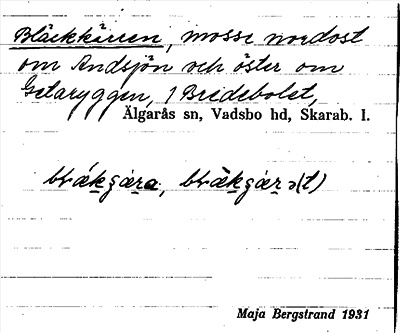 Bläckkärren, mosse nordost
om Andsjön och öster om
Getaryggen, 1 Bredebolet,
Älgarås sn, Vadsbo hd, Skarab. l.
Maja Bergstrand 1931